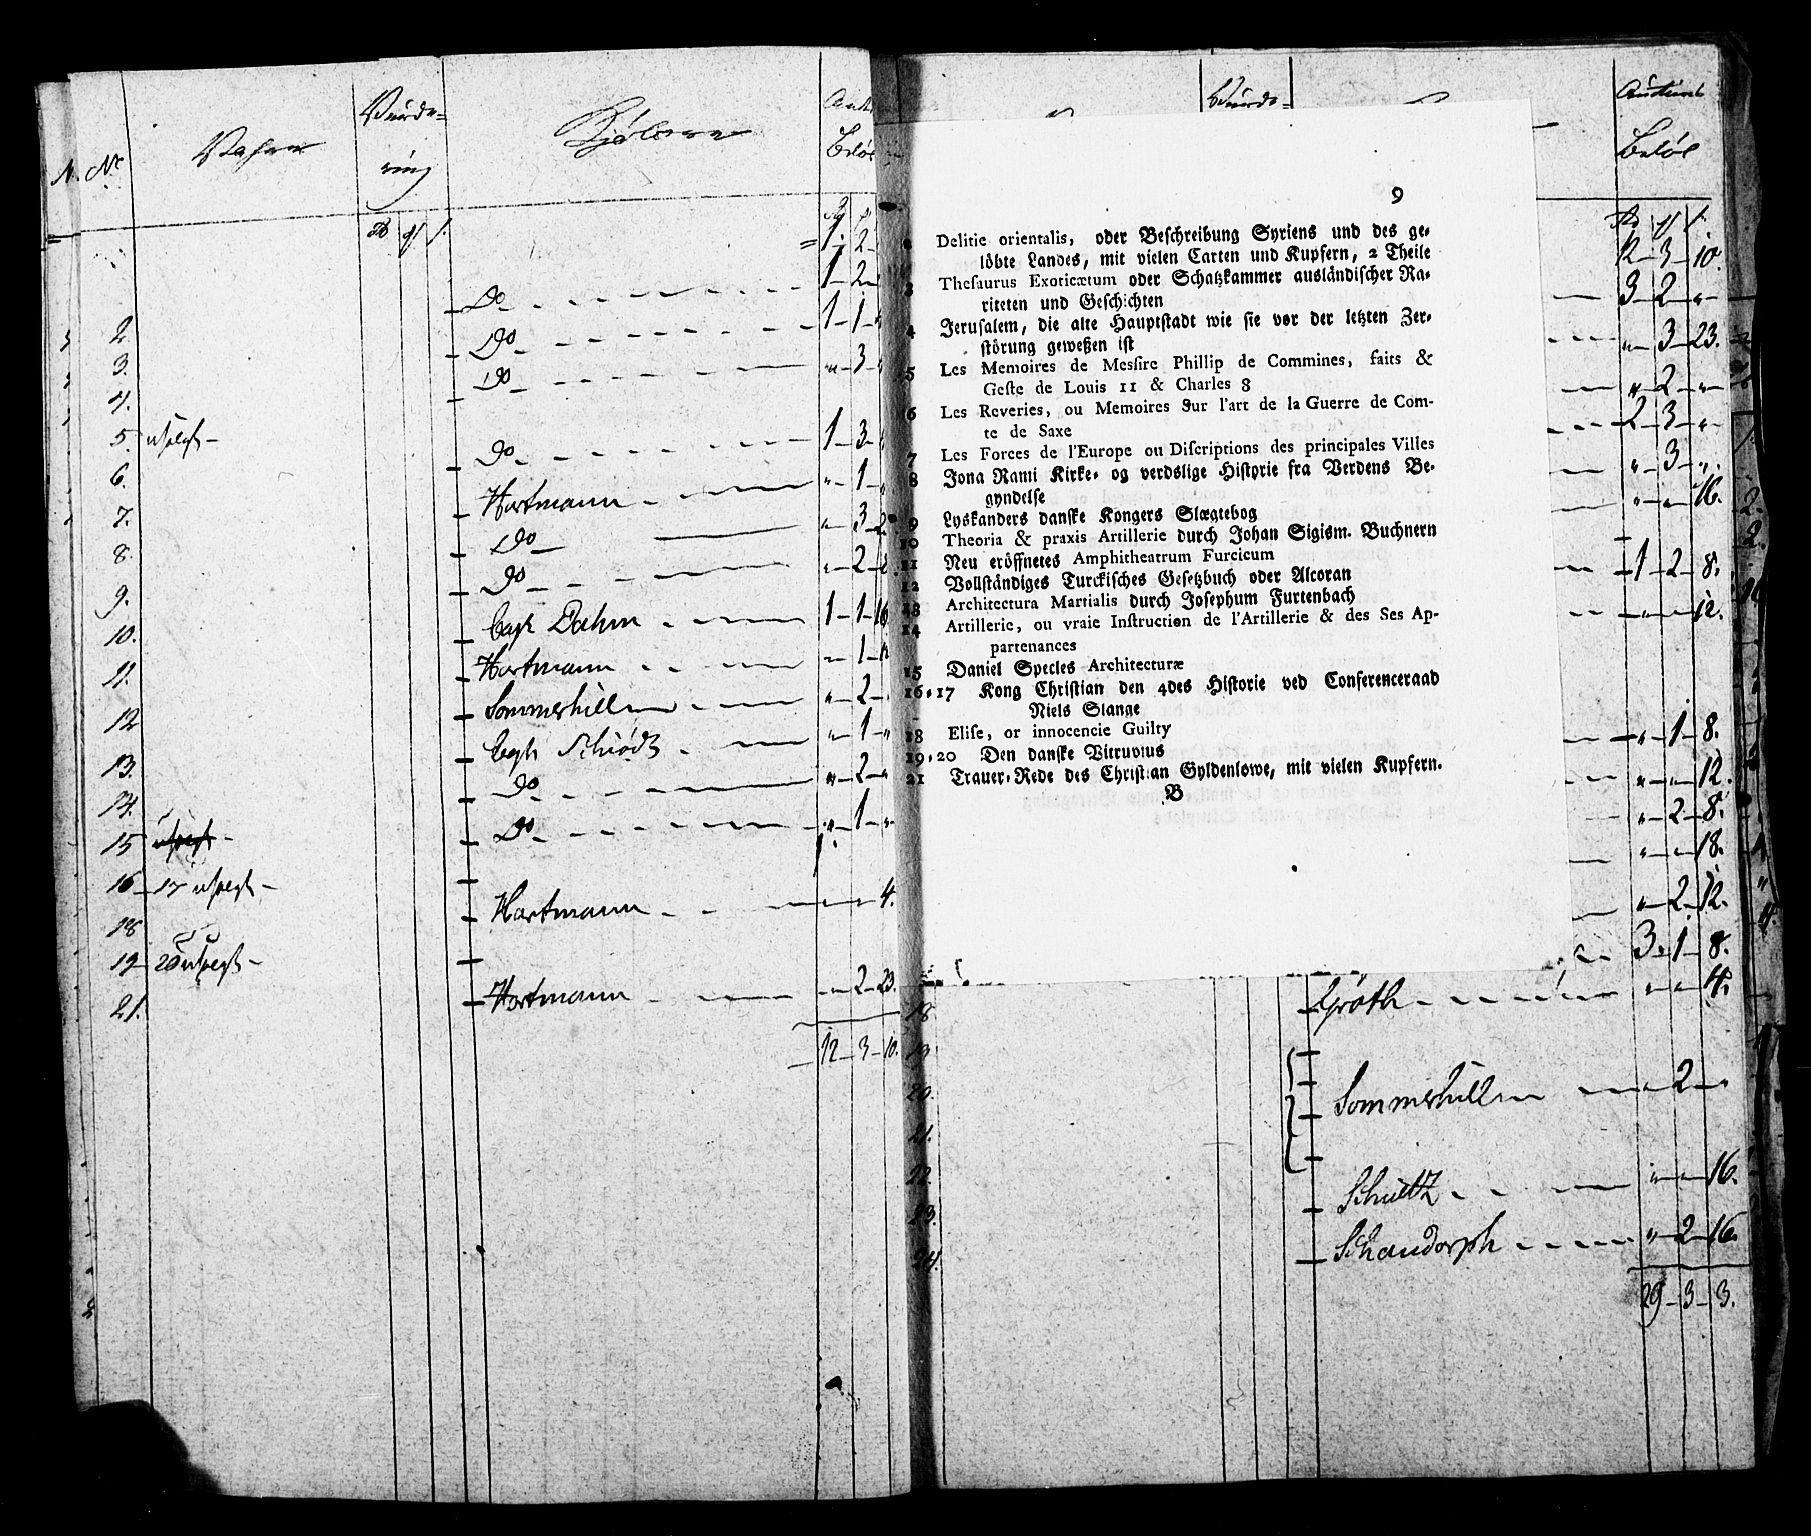 N. No Vahre Vurde= Kjøbere
ring Beløb
2. Do 1 2
3. Do 1 1
4. Do " 3
5. usolgt
6. Do 1 3
7. Hartmann " 1
8. Do " 3
9. Do " 2
10. Capt Dahm 1 1 16
11. Hartmann " 1
12 Sommerhielm " 2
13. Capt Schiødt " 1 "
14. Do " 2 "
15 Do " 1 "
16 17 usolgt
18 Hartmann 4.
19 20 usolgt
21. Hartmann 2 23.
12 3 10.
9
Delitie orientalis, oder Beschreibung Syriens und des ge-
löbte Landes, mit vielen Carten und Kupfern, 2 Theile
3 Thesaurus Exoticætum oder Schatzkammer ausländischer Ra-
riteten und Geschichten
4 Jerusalem, die alte Hauptstadt wie sie vor der letzten Zer-
störung geweßen ist
5 Les Memoires de Messire Phillip de Commines, faits &
Geste de Louis 11 & Charles 8
6 Les Reveries, ou Memoires Sur l'art de la Guerre de Com-
te de Saxe
7 Les Forces de l'Europe ou Discriptions des principales Villes
8 Jona Rami Kirke- og verdslige Historie fra Verdens Be-
gyndelse
9 Lyskanders danske Kongers Slægtebog
10 Theoria & praxis Artillerie durch Johan Sigism. Buchnern
11 Neu eröffnetes Amphitheatrum Furcicum
12 Vollständiges Turckisches Gesetzbuch oder Alcoran
13 Architectura Martialis durch Josephum Furtenbach
14 Artillerie, ou vraie Instruction de l'Artillerie & des Ses Ap-
partenances
15 Daniel Specles Architecturæ
16-17 Kong Christian den 4des Historie ved Conferenceraad
Niels Slange
18 Elise, or innocencie Guilty
19-20 Den danske Vitruvius
21 Trauer-Rede des Christian Gyldenlowe, mit vielen Kupfern.
B
Vurde= Auctions
Beløb
12 3 10.
3 2 "
" 3 23.
" 2 "
2 3 "
" 3 "
" " 16.
1 2 8.
" " 12.
" 1 8.
" " 12.
" 2 8.
" " 18.
" 2 12.
3 1 8.
18 Groth " " 4.
19.
20. Sommerhielm " 2 "
21.
22. Schultz " " 16.
23. Schandorph " 2 16.
24.
29 3 3.